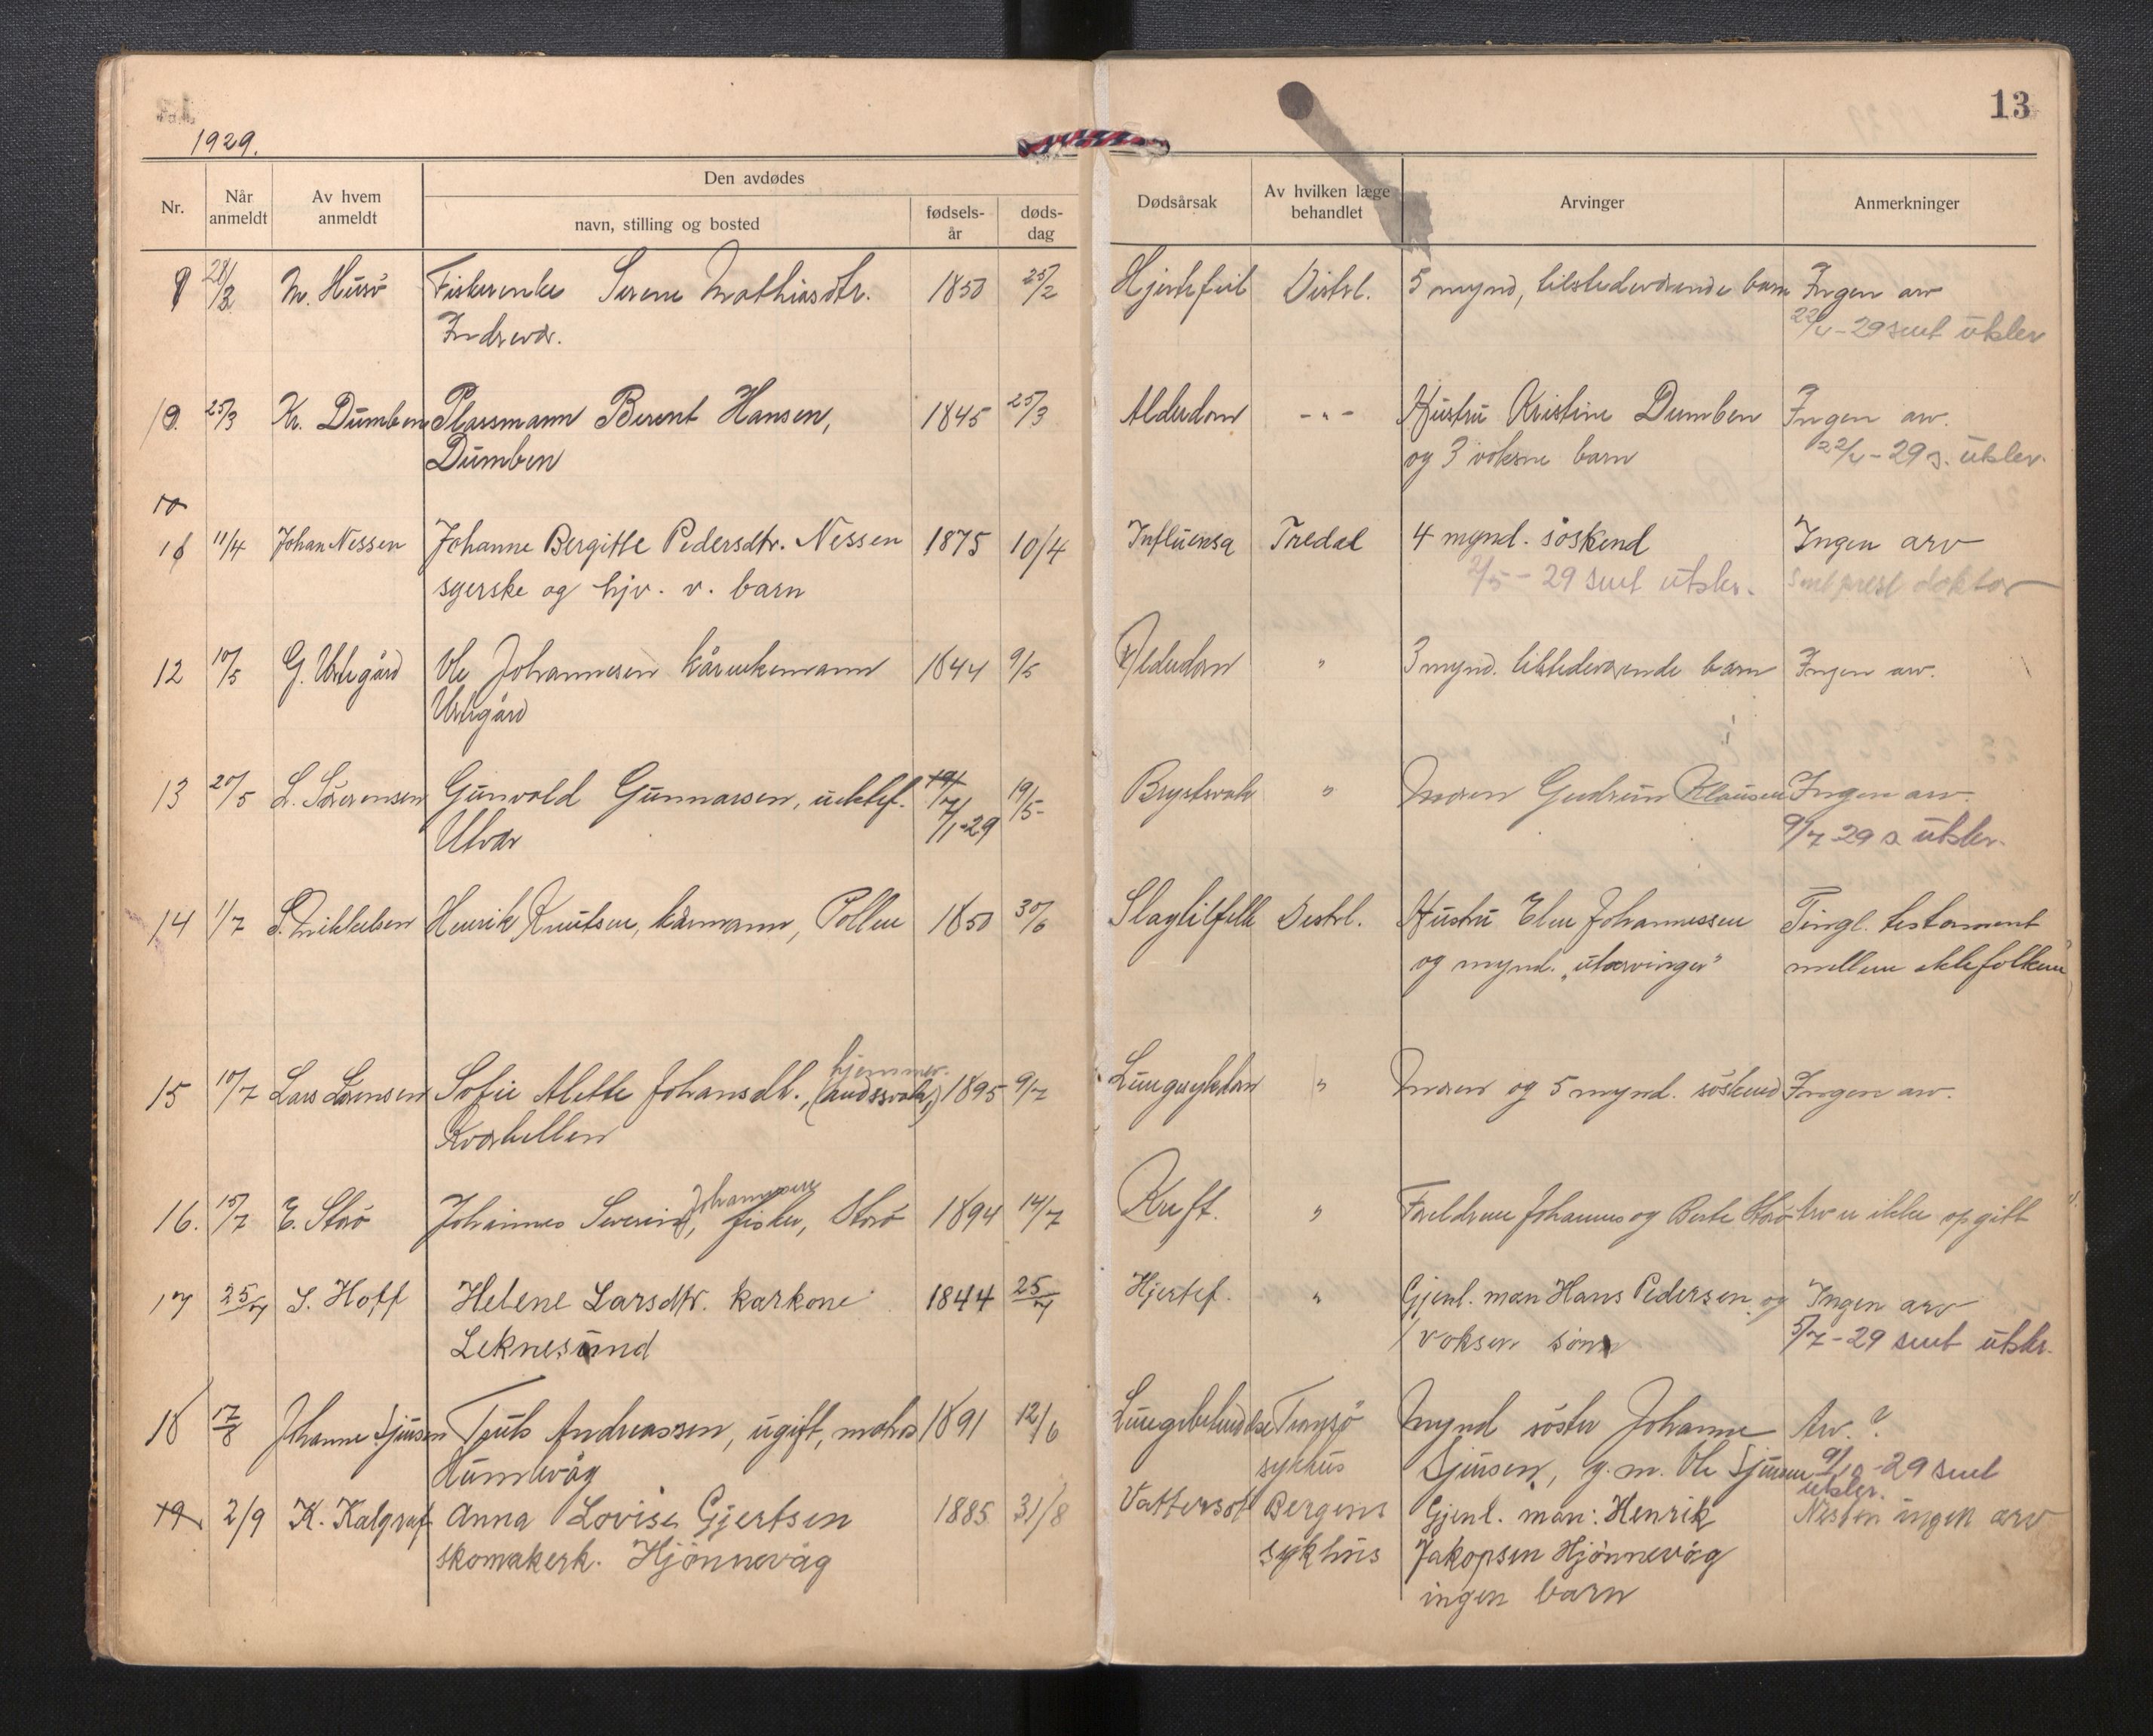 13
1929.
Nr.
Når anmeldt
Av hvem anmeldt
Den avdødes
navn, stilling og bosted
fødsels-år
døds-dag
Dødsårsak
Av hvilken læge behandlet
Arvinger
Anmerkninger
9 28/3 M. Husø Fiskerenke Serene Mathiasdtr. 1850 25/2 Hjertefeil Distrl. 5 mynd, tilstedeværende barn Ingen arv
Indrevær. 22/4-29 sent utskr
10. 25/3 Kr. Dumben Plassmann Berent Hansen, 1845 25/3 Alderdom -"- Hustru Kristine Dumben Ingen arv.
Dumben og 3 voksne barn 22/4-29 s. utskr.
10
11 11/4 Johan Nessen Johanne Bergitte Pedersdtr. Nessen 1875 10/4 Influensa Tredal 4 mynd. søskend Ingen arv
syerske og hjv. v. barn 2/5-29 sent utskr. Sent prest doktor
12 10/5 G. Ole Johannesen kårenkemann 1844 9/5 Alderdom " 3 mynd. tilstedeværende barn Ingen arv.
13 20/5 L. Sørensen Gunvald Gunnarsen, uektef. 19/7 7/1-29 19/5- Brystsvak " Moren Gudrun Klausen Ingen arv.
Utvær 9/7-29 s. utskr.
14 1/7 S. Mikkelsen Henrik Knutsen, kårmann, Pollen 1850 30/6 Slagtilfelle Distrl. Hustru Elen Johannessen Tingl. testament
og mynd. "utarvinger" mellem ektefolkene
hjemmev.
15 10/7 Lars Lorensen Sofie Alette Johansdtr., (andssvak,) 1895 9/7 Lungesykdom " Moren og 5 mynd. søskend Ingen arv.
Kvarhellen
Johannessen
16. 15/7 E. Storø Johannes Severin, fisker, Storø 1894 14/7 Kreft. " Foreldrene Johannes og Berte Storø Arv er ikke opgitt
17 25/7 S. Hoff Helene Larsdtr. karkone 1844 25/7 Hjertef. " Gjenl. man Hans Pedersen og Ingen arv
Leknesund 1 voksen sønn 5/7-29 sent utskr.
18 17/8 Johanne Sjursen Andreassen, ugift, matros 1891 12/6 Lungebetendelse Tromsø Mynd søster Johanne Arv.?
Humlevåg sykhus Sjursen, g. m. Ole Sjursen 9/10-29 sent
utskr.
19 2/9 K. Kalgraf Anna Lovise Gjertsen 1885 31/8 Vattersot Bergens Gjenl. man: Henrik Nesten ingen arv
skomakerk. Hjønnevåg sykhus Jakopsen Hjønnevåg
ingen barn